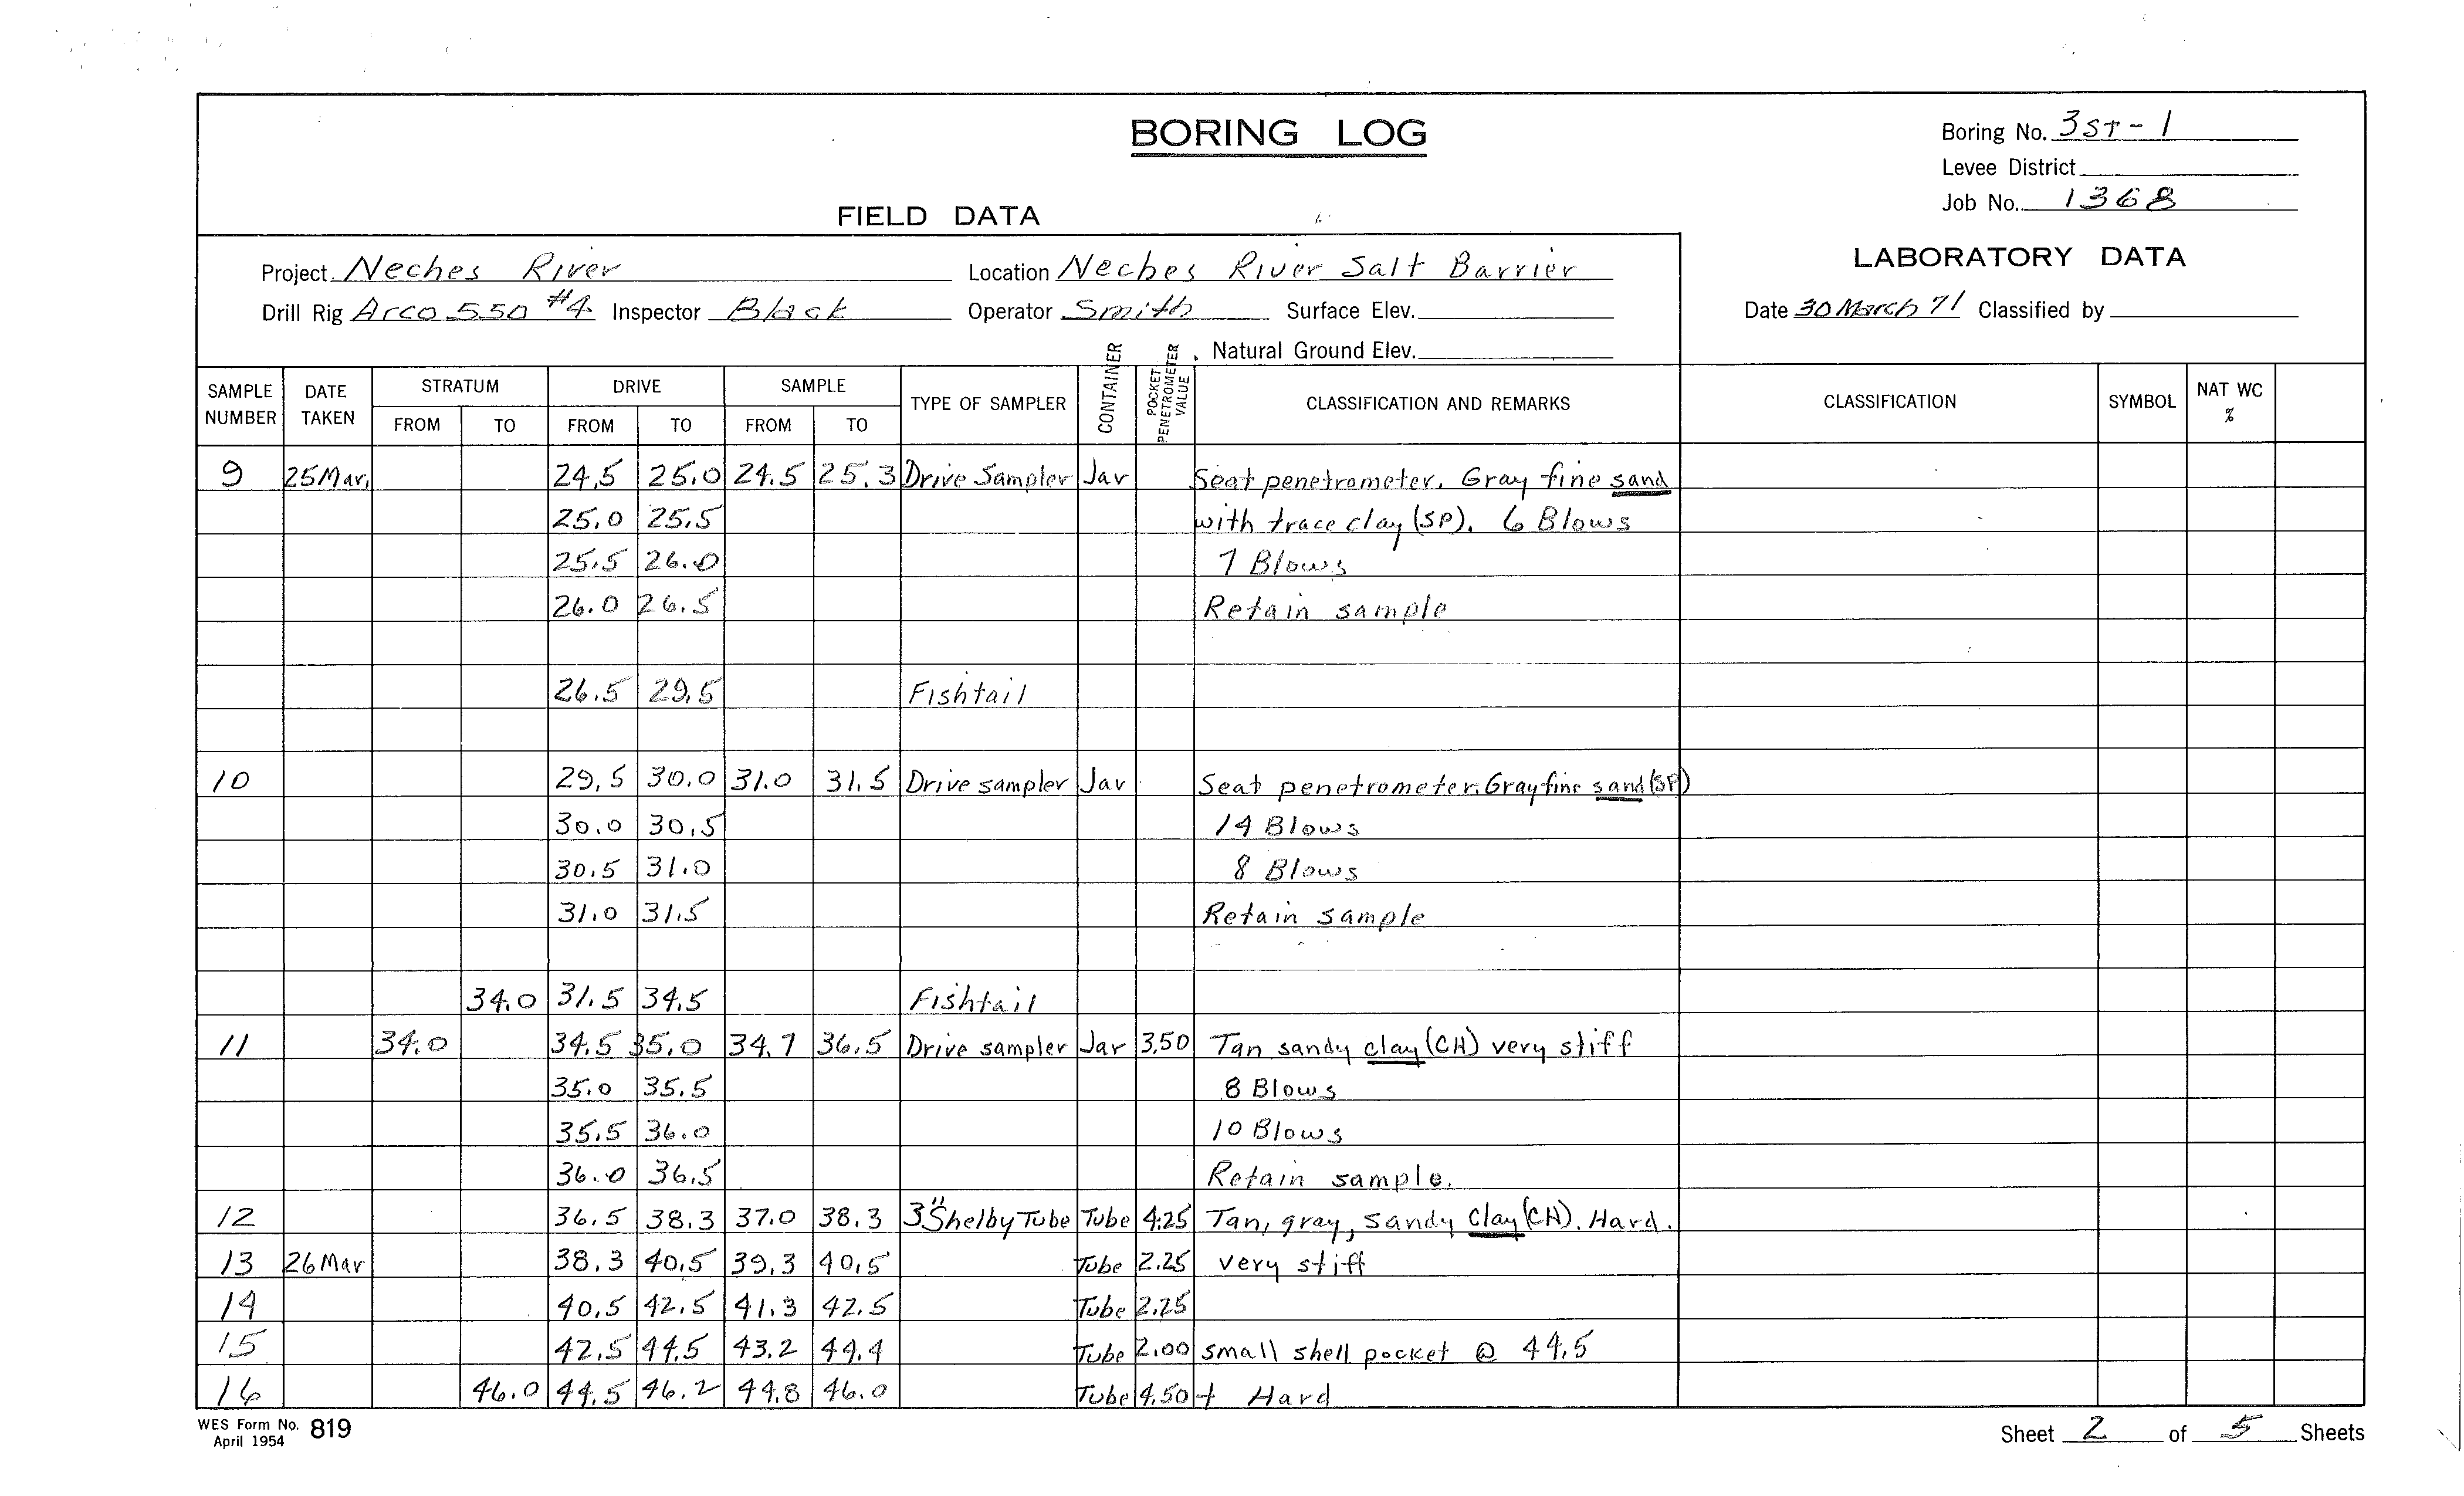 BORING LOG
Boring No. 3ST-1
Levee District
Job No. 1368
FIELD DATA
LABORATORY DATA
Project Neches River Location Neches River Salt Barrier
Drill Rig Arco 550 #4 Inspector Black Operator Smith Surface Elev. Date 30 March 71 Classified by
Natural Ground Elev.
SAMPLE NUMBER DATE TAKEN STRATUM FROM TO DRIVE FROM TO SAMPLE FROM TO TYPE OF SAMPLER CONTAINER POCKET PENETROMETER VALUE CLASSIFICATION AND REMARKS CLASSIFICATION SYMBOL NAT WC %
9 25 Mar. 24.5 25.0 24.5 25.3 Drive Sampler Jar Seat penetrometer. Gray fine sand
25.0 25.5 with trace clay (SP). 6 Blows
25.5 26.0 7 Blows
26.0 26.5 Retain sample
26.5 29.5 Fishtail
10 29.5 30.0 31.0 31.5 Drive sampler Jar Seat penetrometer. Gray fine sand (SP)
30.0 30.5 14 Blows
30.5 31.0 8 Blows
31.0 31.5 Retain sample
34.0 31.5 34.5 Fishtail
11 34.0 34.5 35.0 34.7 36.5 Drive sampler Jar 3.50 Tan sandy clay (CH) very stiff
35.0 35.5 8 Blows
35.5 36.0 10 Blows
36.0 36.5 Retain sample.
12 36.5 38.3 37.0 38.3 3" Shelby Tube Tube 4.25 Tan, gray, sandy clay (CH). Hard.
13 26 Mar 38.3 40.5 39.3 40.5 Tube 2.25 very stiff
14 40.5 42.5 41.3 42.5 Tube 2.25
15 42.5 44.5 43.2 44.4 Tube 2.00 small shell pocket @ 44.5
16 46.0 44.5 46.2 44.8 46.0 Tube 4.50+ Hard
WES Form No. 819
April 1954
Sheet 2 of 5 Sheets